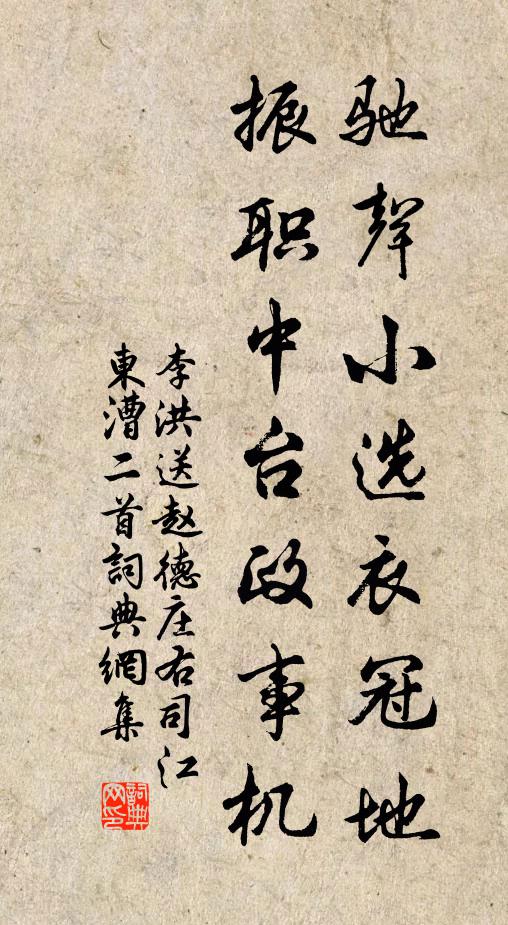 驰聲小选衣冠地
振职中台政事机
李洪送赵德庄右司江
東漕二首詞典網集
詞典
网印